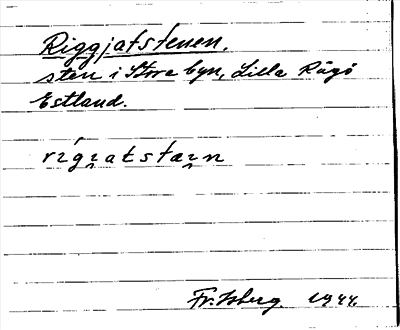 Riggjatstenen.
sten i Stora byn, Lilla Rågö
Estland.
rígi̯atstæi̯n
Fr. Isberg 1944.